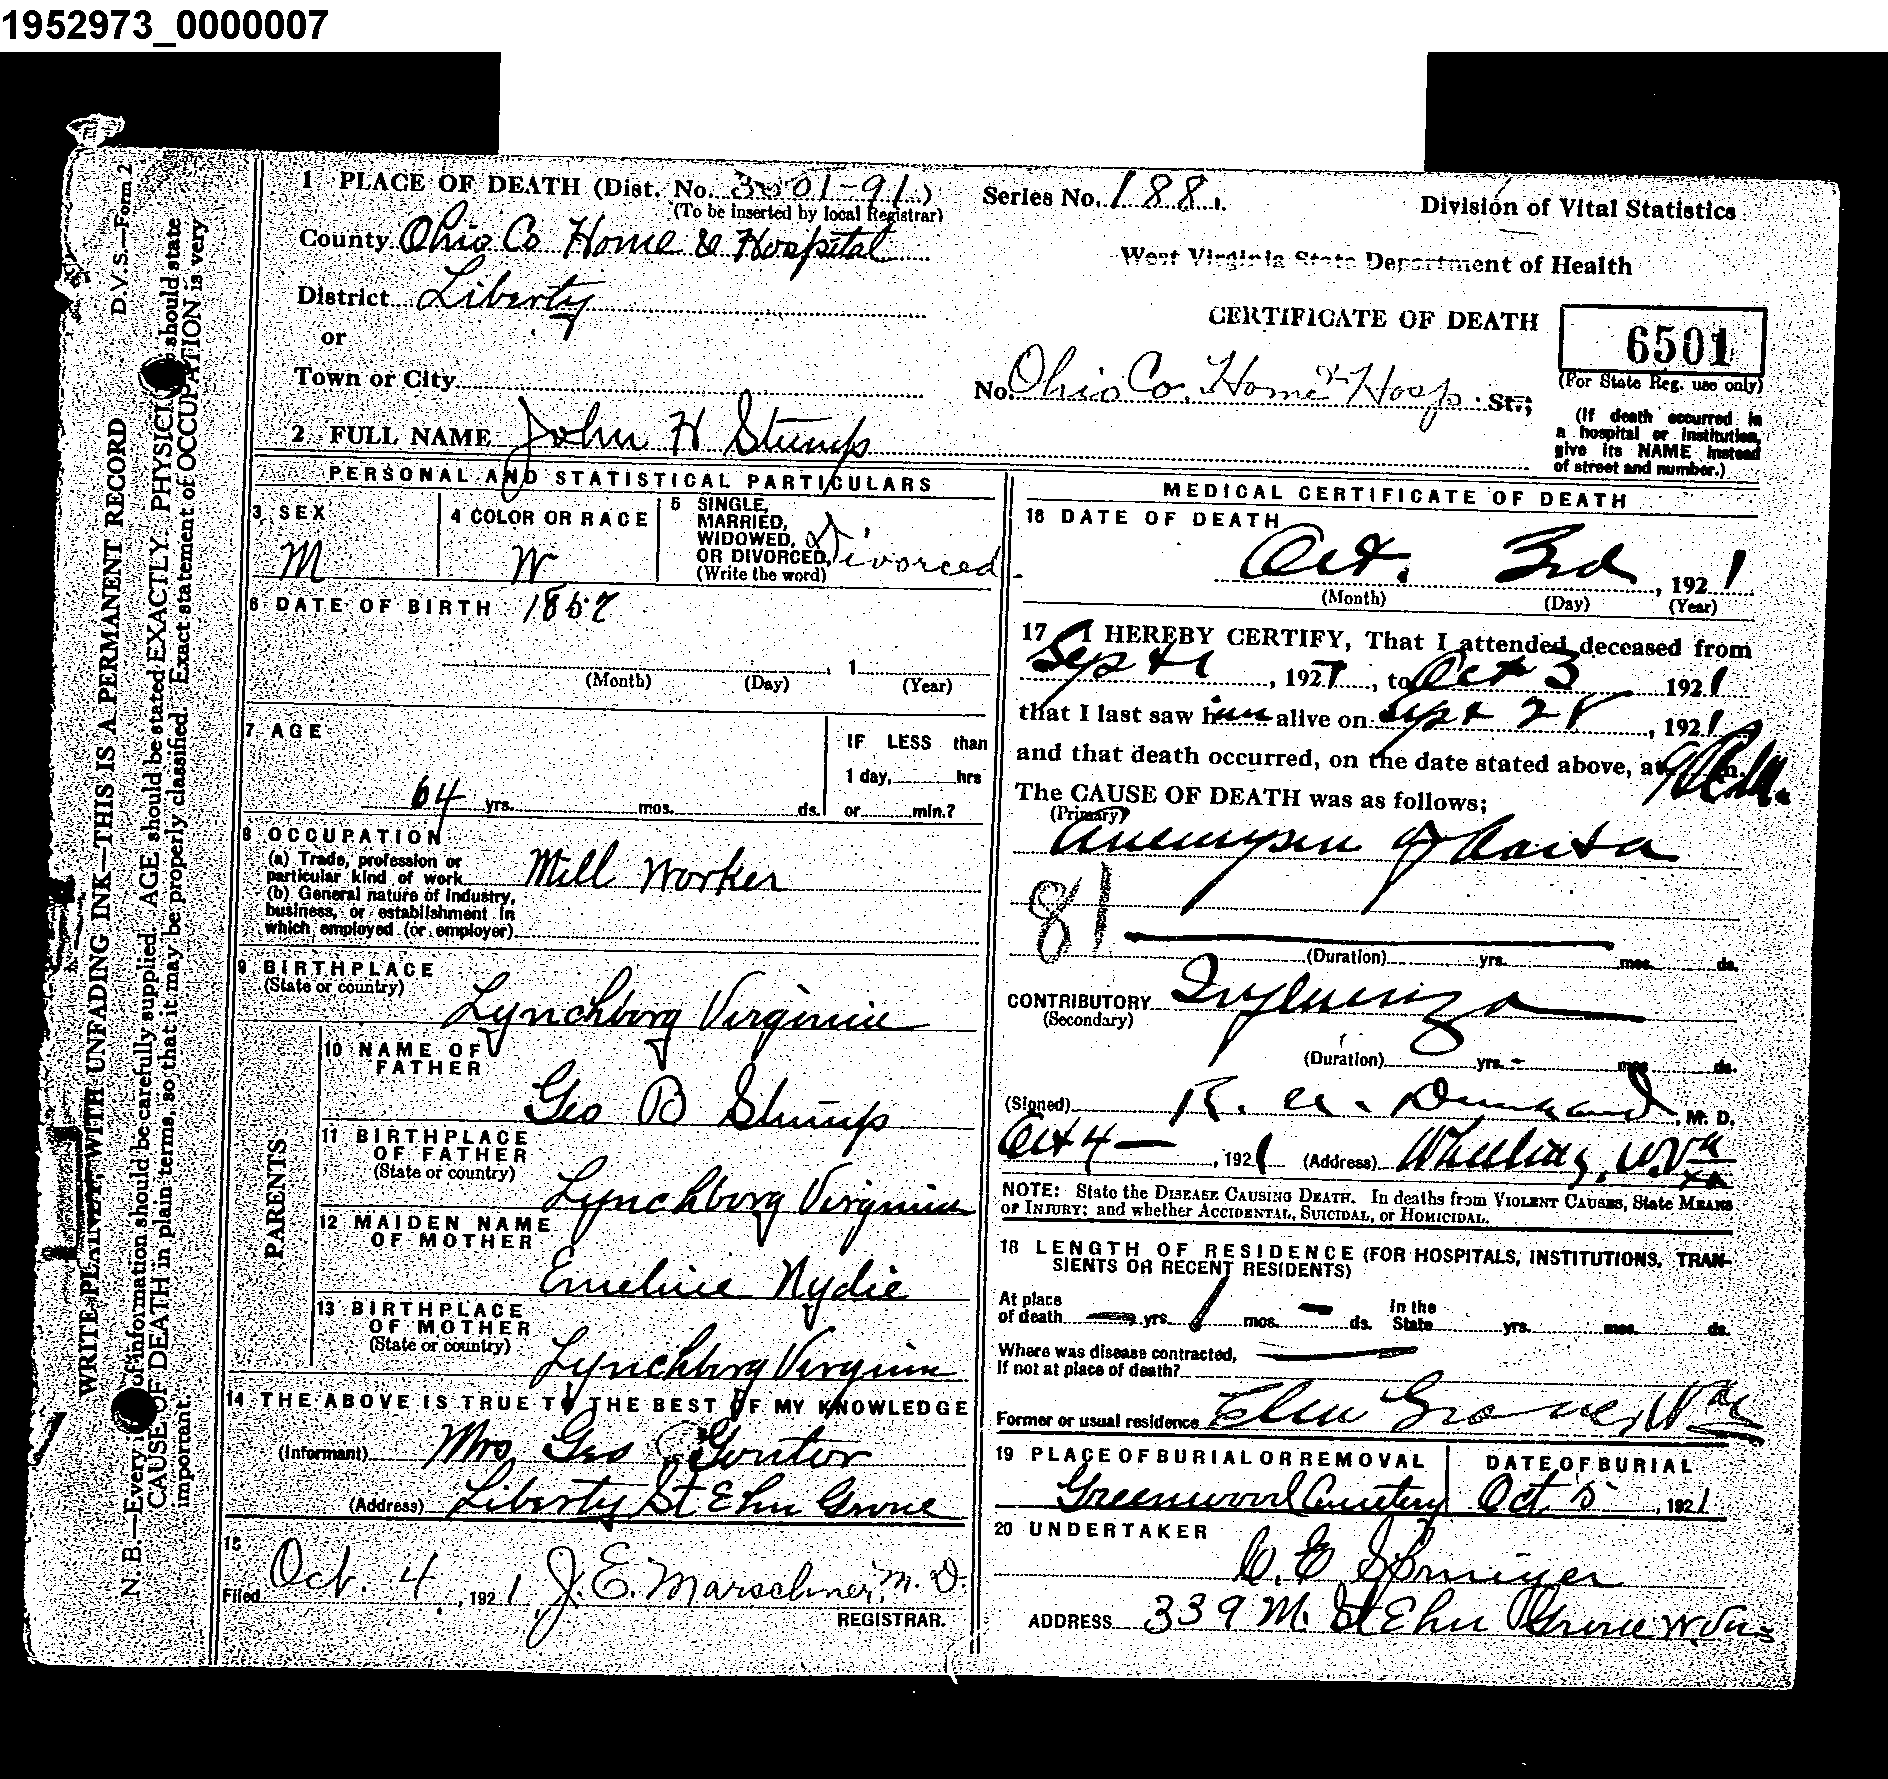 1952973_0000007
D.V.S.—Form 2
WRITE PLAINLY, WITH UNFADING INK—THIS IS A PERMANENT RECORD
N. B.—Every of information should be carefully supplied. AGE should be stated EXACTLY. PHYSICI should state
CAUSE OF DEATH in plain terms, so that it may be properly classified. Exact statement of OCCUPATION is very
important.
1 PLACE OF DEATH (Dist. No. 3501-91)
(To be inserted by local Registrar)
Series No. 188
Division of Vital Statistics
County Ohio Co Home & Hospital
West Virginia State Department of Health
District Liberty
CERTIFICATE OF DEATH
6501
(For State Reg. use only)
or
Town or City
No. Ohio Co. Home & Hosp. St.;
(If death occurred in
a hospital or institution,
give its NAME instead
of street and number.)
2 FULL NAME John H Stump
PERSONAL AND STATISTICAL PARTICULARS
3 SEX
M
4 COLOR OR RACE
W
5 SINGLE,
MARRIED,
WIDOWED,
OR DIVORCED,
(Write the word)
Divorced
6 DATE OF BIRTH 1857
, 1
(Month) (Day) (Year)
7 AGE
64 yrs. mos. ds.
IF LESS than
1 day, hrs
or min.?
8 OCCUPATION
(a) Trade, profession or
particular kind of work
Mill Worker
(b) General nature of industry,
business, or establishment in
which employed (or employer)
9 BIRTHPLACE
(State or country)
Lynchborg Virginia
PARENTS
10 NAME OF
FATHER
Geo B Stump
11 BIRTHPLACE
OF FATHER
(State or country)
Lynchborg Virginia
12 MAIDEN NAME
OF MOTHER
Emeline Nydie
13 BIRTHPLACE
OF MOTHER
(State or country)
Lynchborg Virginia
14 THE ABOVE IS TRUE TO THE BEST OF MY KNOWLEDGE
(Informant) Mrs Geo
(Address) Liberty St Elm Grove
15
Filed Oct. 4, 1921 J. E. Marschner, M. D.
REGISTRAR.
MEDICAL CERTIFICATE OF DEATH
16 DATE OF DEATH
Oct. 3rd, 1921
(Month) (Day) (Year)
17 I HEREBY CERTIFY, That I attended deceased from
Sept 1, 1921, to Oct 3 1921
that I last saw him alive on Sept 28, 1921
and that death occurred, on the date stated above, at 9 P.M. m.
The CAUSE OF DEATH was as follows;
(Primary)
Aneurysm of Aorta
81
(Duration) yrs. mos. ds.
CONTRIBUTORY Influenza
(Secondary)
(Duration) yrs. mos. ds.
(Signed) R. M. D.
Oct 4 —, 1921 (Address) Wheeling, W.Va
NOTE: State the DISEASE CAUSING DEATH. In deaths from VIOLENT CAUSES, State MEANS
OF INJURY; and whether ACCIDENTAL, SUICIDAL, or HOMICIDAL.
18 LENGTH OF RESIDENCE (FOR HOSPITALS, INSTITUTIONS, TRAN-
SIENTS OR RECENT RESIDENTS)
At place
of death — yrs. 1 mos. — ds. In the
State yrs. mos. ds.
Where was disease contracted,
If not at place of death?
Former or usual residence Elm Grove, W Va
19 PLACE OF BURIAL OR REMOVAL
Greenwood Cemetery
DATE OF BURIAL
Oct 5, 1921
20 UNDERTAKER
C. E
ADDRESS 339 M. St Elm Grove W. Va